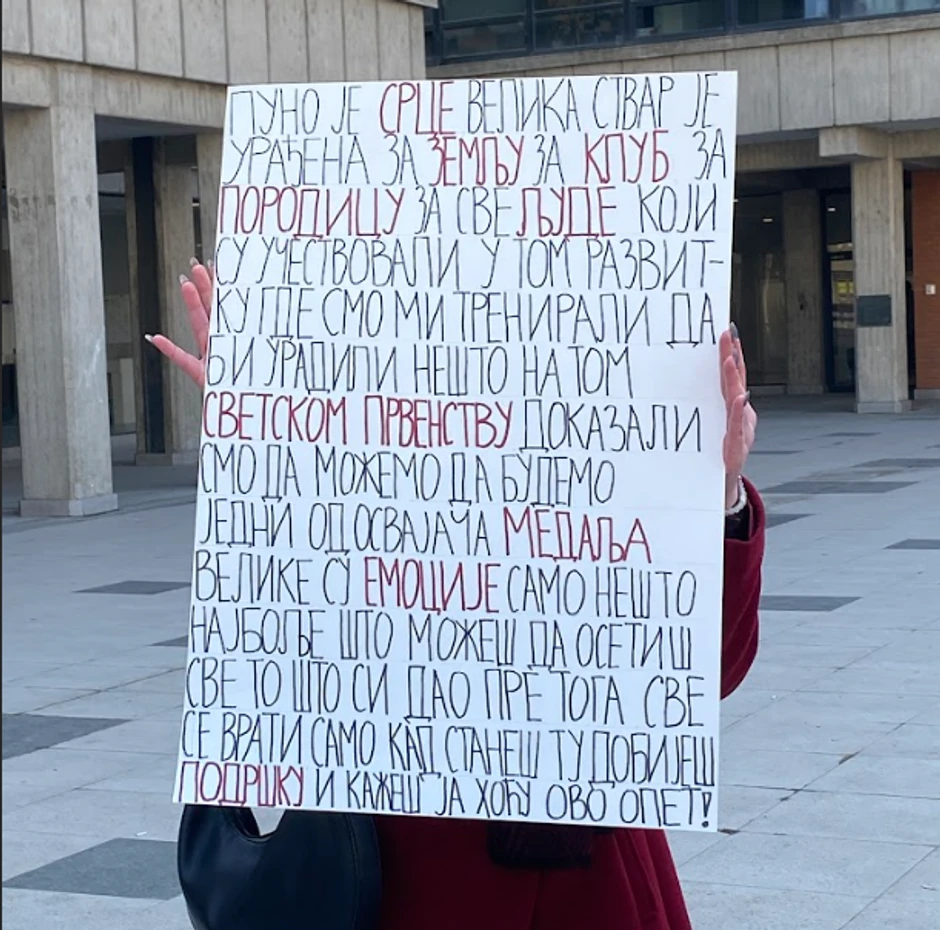 ПУНО ЈЕ СРЦЕ ВЕЛИКА СТВАР ЈЕ
УРАЂЕНА ЗА ЗЕМЉУ ЗА КЛУБ ЗА
ПОРОДИЦУ ЗА СВЕ ЉУДЕ КОЈИ
СУ УЧЕСТВОВАЛИ У ТОМ РАЗВИТ-
КУ ГДЕ СМО МИ ТРЕНИРАЛИ ДА
БИ УРАДИЛИ НЕШТО НА ТОМ
СВЕТСКОМ ПРВЕНСТВУ ДОКАЗАЛИ
СМО ДА МОЖЕМО ДА БУДЕМО
ЈЕДНИ ОД ОСВАЈАЧА МЕДАЉА
ВЕЛИКЕ СУ ЕМОЦИЈЕ САМО НЕШТО
НАЈБОЉЕ ШТО МОЖЕШ ДА ОСЕТИШ
СВЕ ТО ШТО СИ ДАО ПРЕ ТОГА СВЕ
СЕ ВРАТИ САМО КАД СТАНЕШ ТУ ДОБИЈЕШ
ПОДРШКУ И КАЖЕШ ЈА ХОЋУ ОВО ОПЕТ!